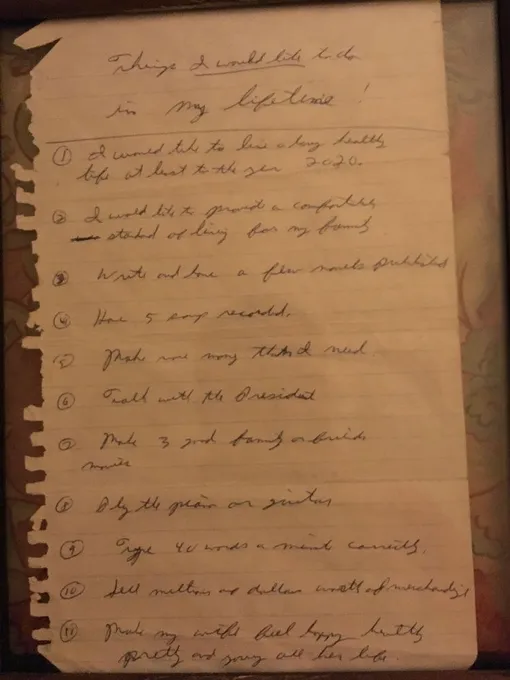 Things I would like to do
in my lifetime!
① I would like to live a long healthy
life at least to the year 2020.
② I would like to provid a comfortable
standad of living for my family
③ Write and have a few novels published
④ Have 5 songs recorded.
⑤ Make more money than I need.
⑥ Talk with the President
⑦ Make 3 good family or
movies
⑧ Play the piano or guitar
⑨ Type 40 words a minute correctly.
⑩ Sell millions of dollars worth of merchandize
⑪ Make my wife feel happy healthy
pretty and young all her life.